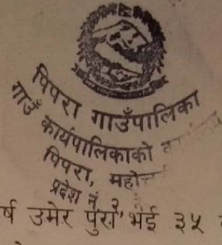 पिपरा गाउँपालिका
गाउँ कार्यपालिकाको
पिपरा,
प्रदेश नं. २
र्ष उमेर पुरा भई ३५